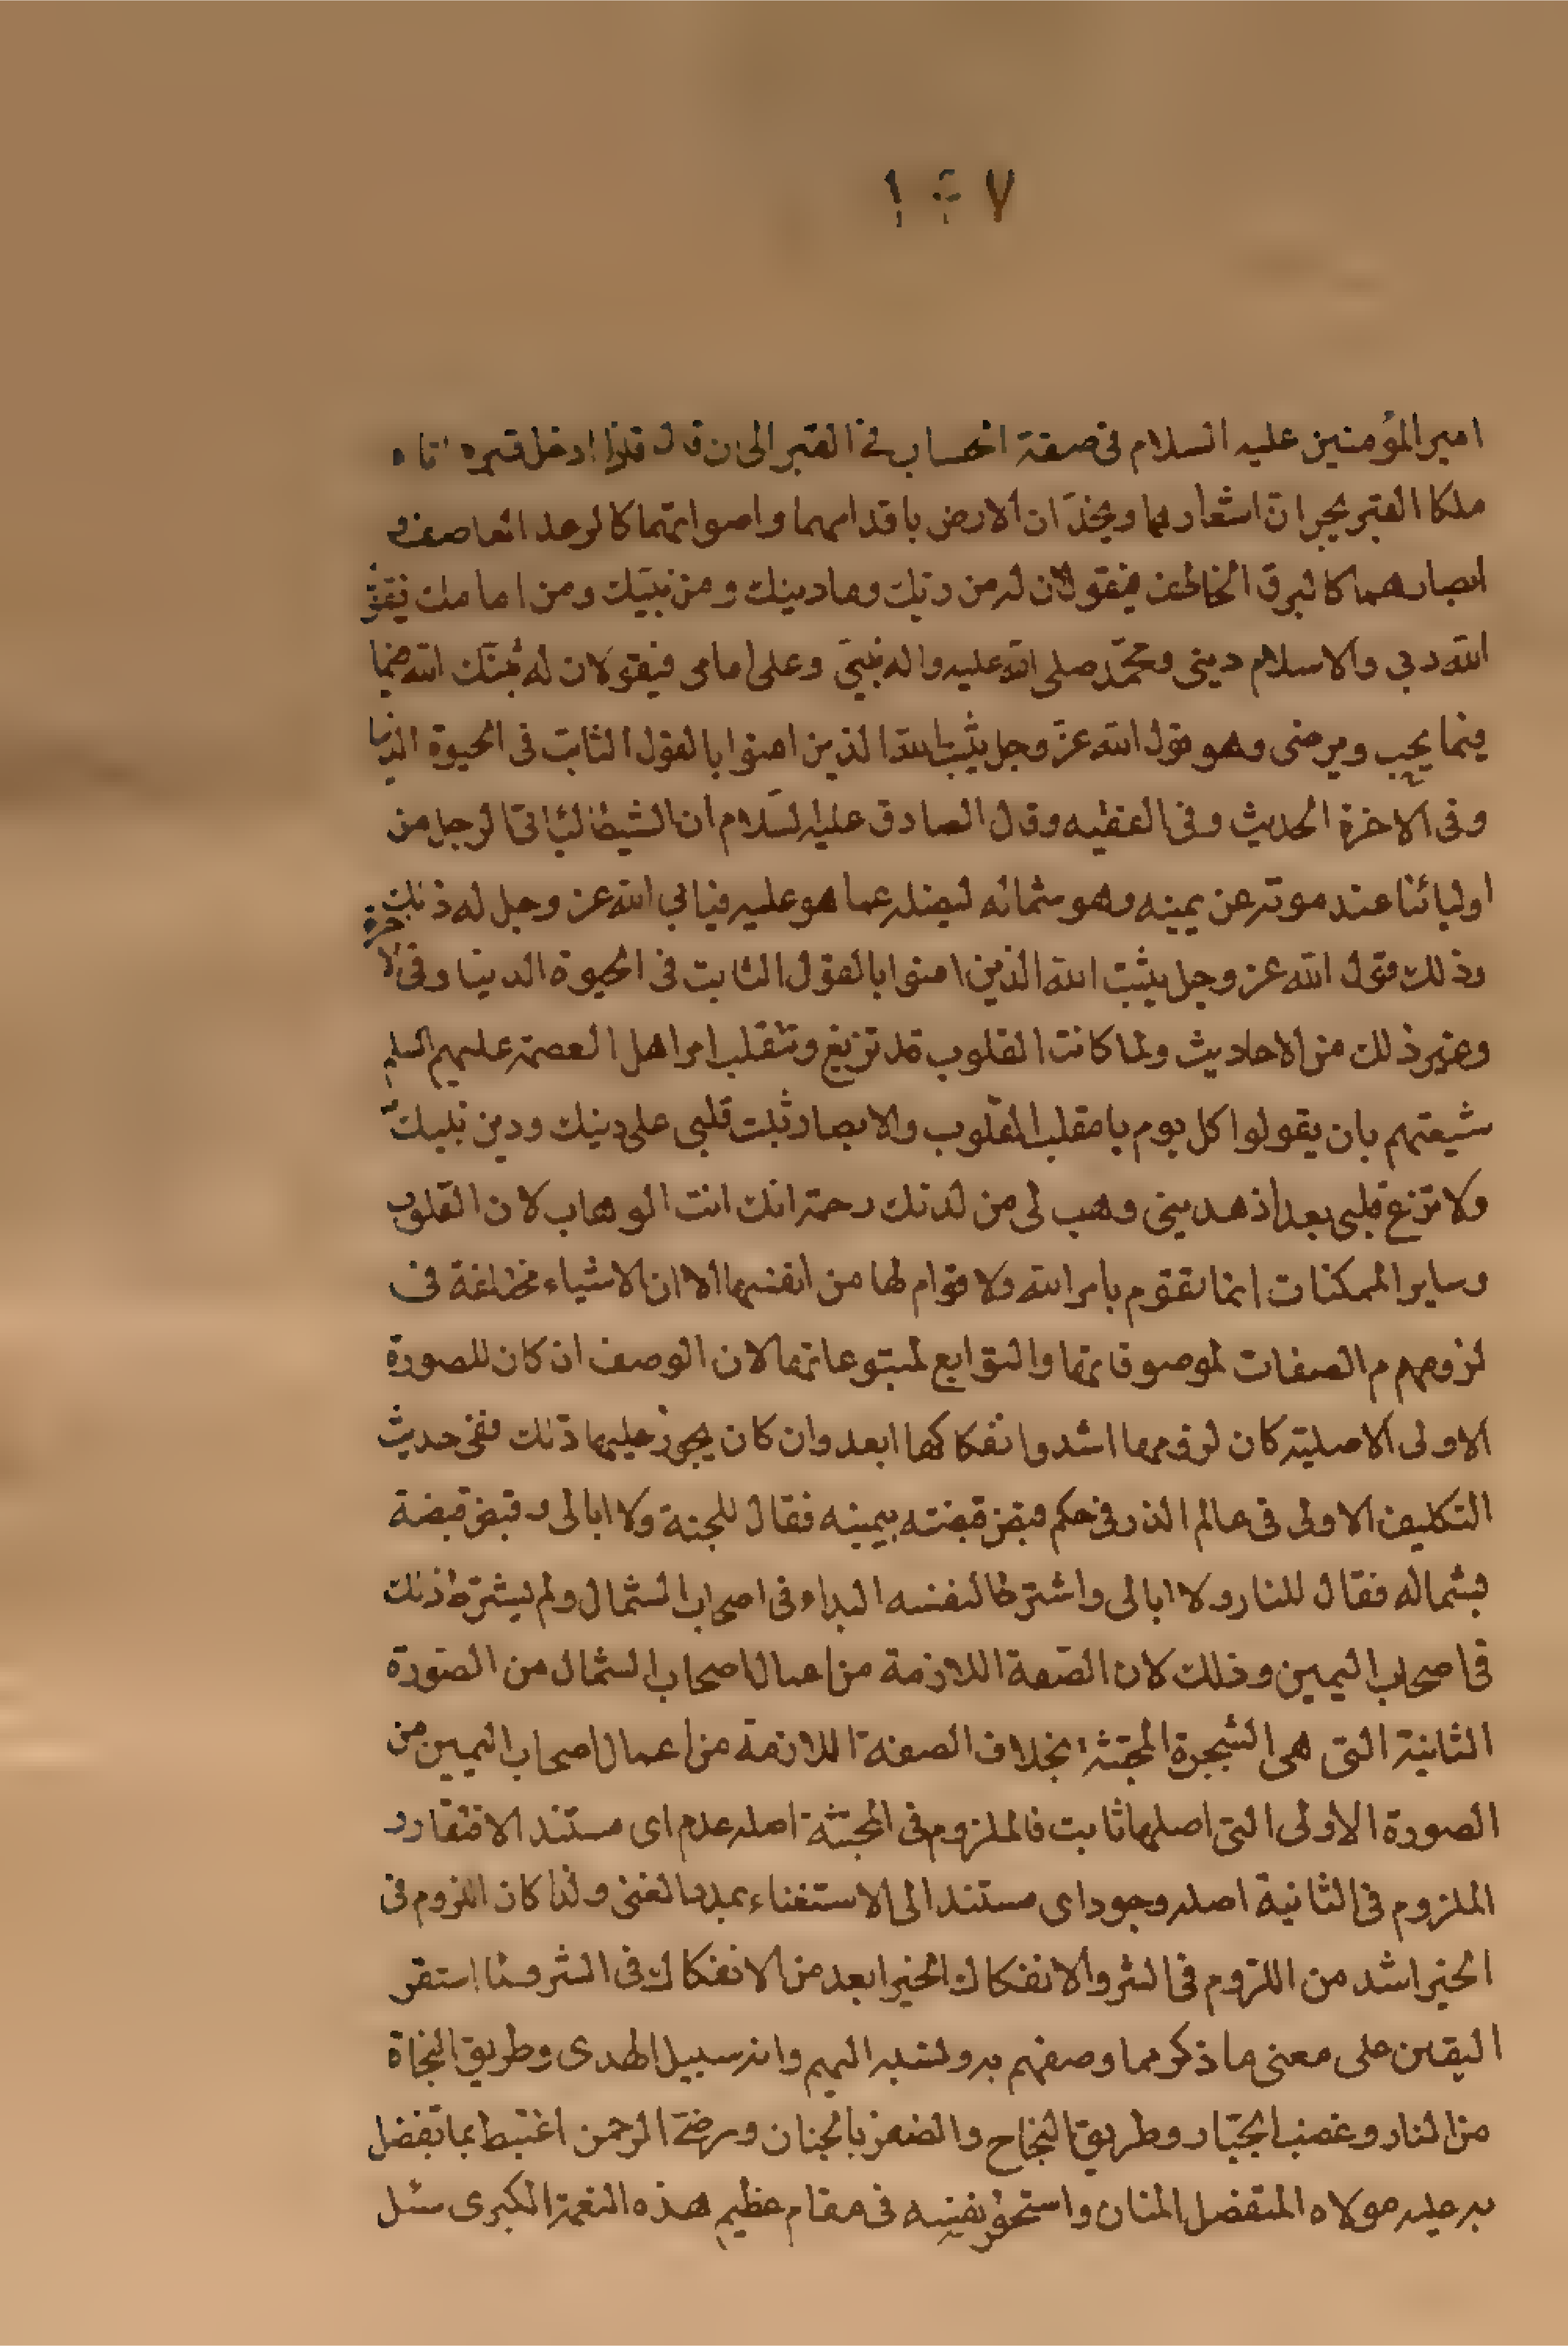 امير المؤمنين عليه السلام فى صفة الحساب فى القبر الى ان قال فاذا ادخل قبره اتاه
ملكا القبر يجران اشعارهما ويخدّان الارض باقدامهما واصواتهما كالرعد العاصف و
ابصارهما كالبرق الخاطف فيقولان له من ربّك وما دينك ومن نبيّك ومن امامك فيقو
الله ربى والاسلام دينى ومحمّد صلى الله عليه واله نبيّى وعلى امامى فيقولان له ثبّتك الله فيما
فيما يحب ويرضى وهو قول الله عزّ وجل يثبت الله الذين امنوا بالقول الثابت فى الحيوة الدنيا
وفى الاخرة الحديث وفى الفقيه وقال الصادق عليه السّلام ان الشيطان ليأتى الرجل من
اوليائنا عند موته عن يمينه وعن شماله ليضله عما هو عليه فيأبى الله عز وجل له ذلك
وذلك قول الله عز وجل يثبت الله الذين امنوا بالقول الثابت فى الحيوة الدنيا وفى الاخرة
وغير ذلك من الاحاديث ولما كانت القلوب قد تزيغ وتنقلب امر اهل العصمة عليهم السلم
شيعتهم بان يقولوا كل يوم يا مقلب القلوب والابصار ثبت قلبى على دينك ودين نبيك
ولا تزغ قلبى بعد اذ هديتنى وهب لى من لدنك رحمة انك انت الوهاب لان القلوب
وساير الممكنات انما تقوم بامر الله ولا قوام لها من انفسها الا ان الاشياء مختلفة فى
لزوم الصفات لموصوفاتها والتوابع لمتبوعاتها لان الوصف ان كان للصورة
الاولى الاصلية كان لزومها اشد وانفكاكها ابعد وان كان يجوز عليها ذلك ففى حديث
التكليف الاولى فى عالم الذر فى حكم قبض قبضته بيمينه فقال للجنة ولا ابالى وقبض قبضة
بشماله فقال للنار ولا ابالى واشترط لنفسه البداء فى اصحاب الشمال ولم يشترط ذلك
فى اصحاب اليمين وذلك لان الصّفة اللازمة من اعمال اصحاب الشمال من الصّورة
الثانية التى هى الشجرة المجتثة بخلاف الصفة اللازمة من اعمال اصحاب اليمين من
الصورة الاولى التى اصلها ثابت فالملزوم فى المجتثة اصله عدم اى مستند الافتقار و
الملزوم فى الثانية اصله وجود اى مستند الى الاستغناء بمدد الغنى ولذا كان اللزوم فى
الخير اشد من اللزوم فى الشر والانفكاك الخير ابعد من الانفكاك فى الشر استقر
اليقين على معنى ما ذكر مما وصفهم به ونسبه اليهم وانه سبيل الهدى وطريق النجاة
من النار وغضب الجبّار وطريق النجاح بالجنان ورضى الرحمن اغتبط بما تفضل
به عليه مولاه المتفضل المنان نفسه فى مقام عظيم هذه النعمة الكبرى سئل